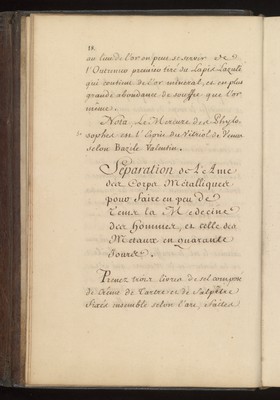 18.
au lieu de l'or on peut se servir de
l'Outremer premier tiré du Lapis Lazuli
qui contient de l'or minéral, et en plus
grande abondance de souffre que l'or
même.
Nota. Le Mercure des Philo-
sophes est l'Esprit du Vitriol de Venus
selon Bazile Valentin.
Séparation de L'Ame
des Corps Métalliques
pour faire en peu de
Tems la Medecine
des hommes, et celle des
Métaux en quarante
Jours.
Prenez trois livres de sel composé
de Crème de Tartre et de Salpêtre
fixés ensemble selon l'art, faites